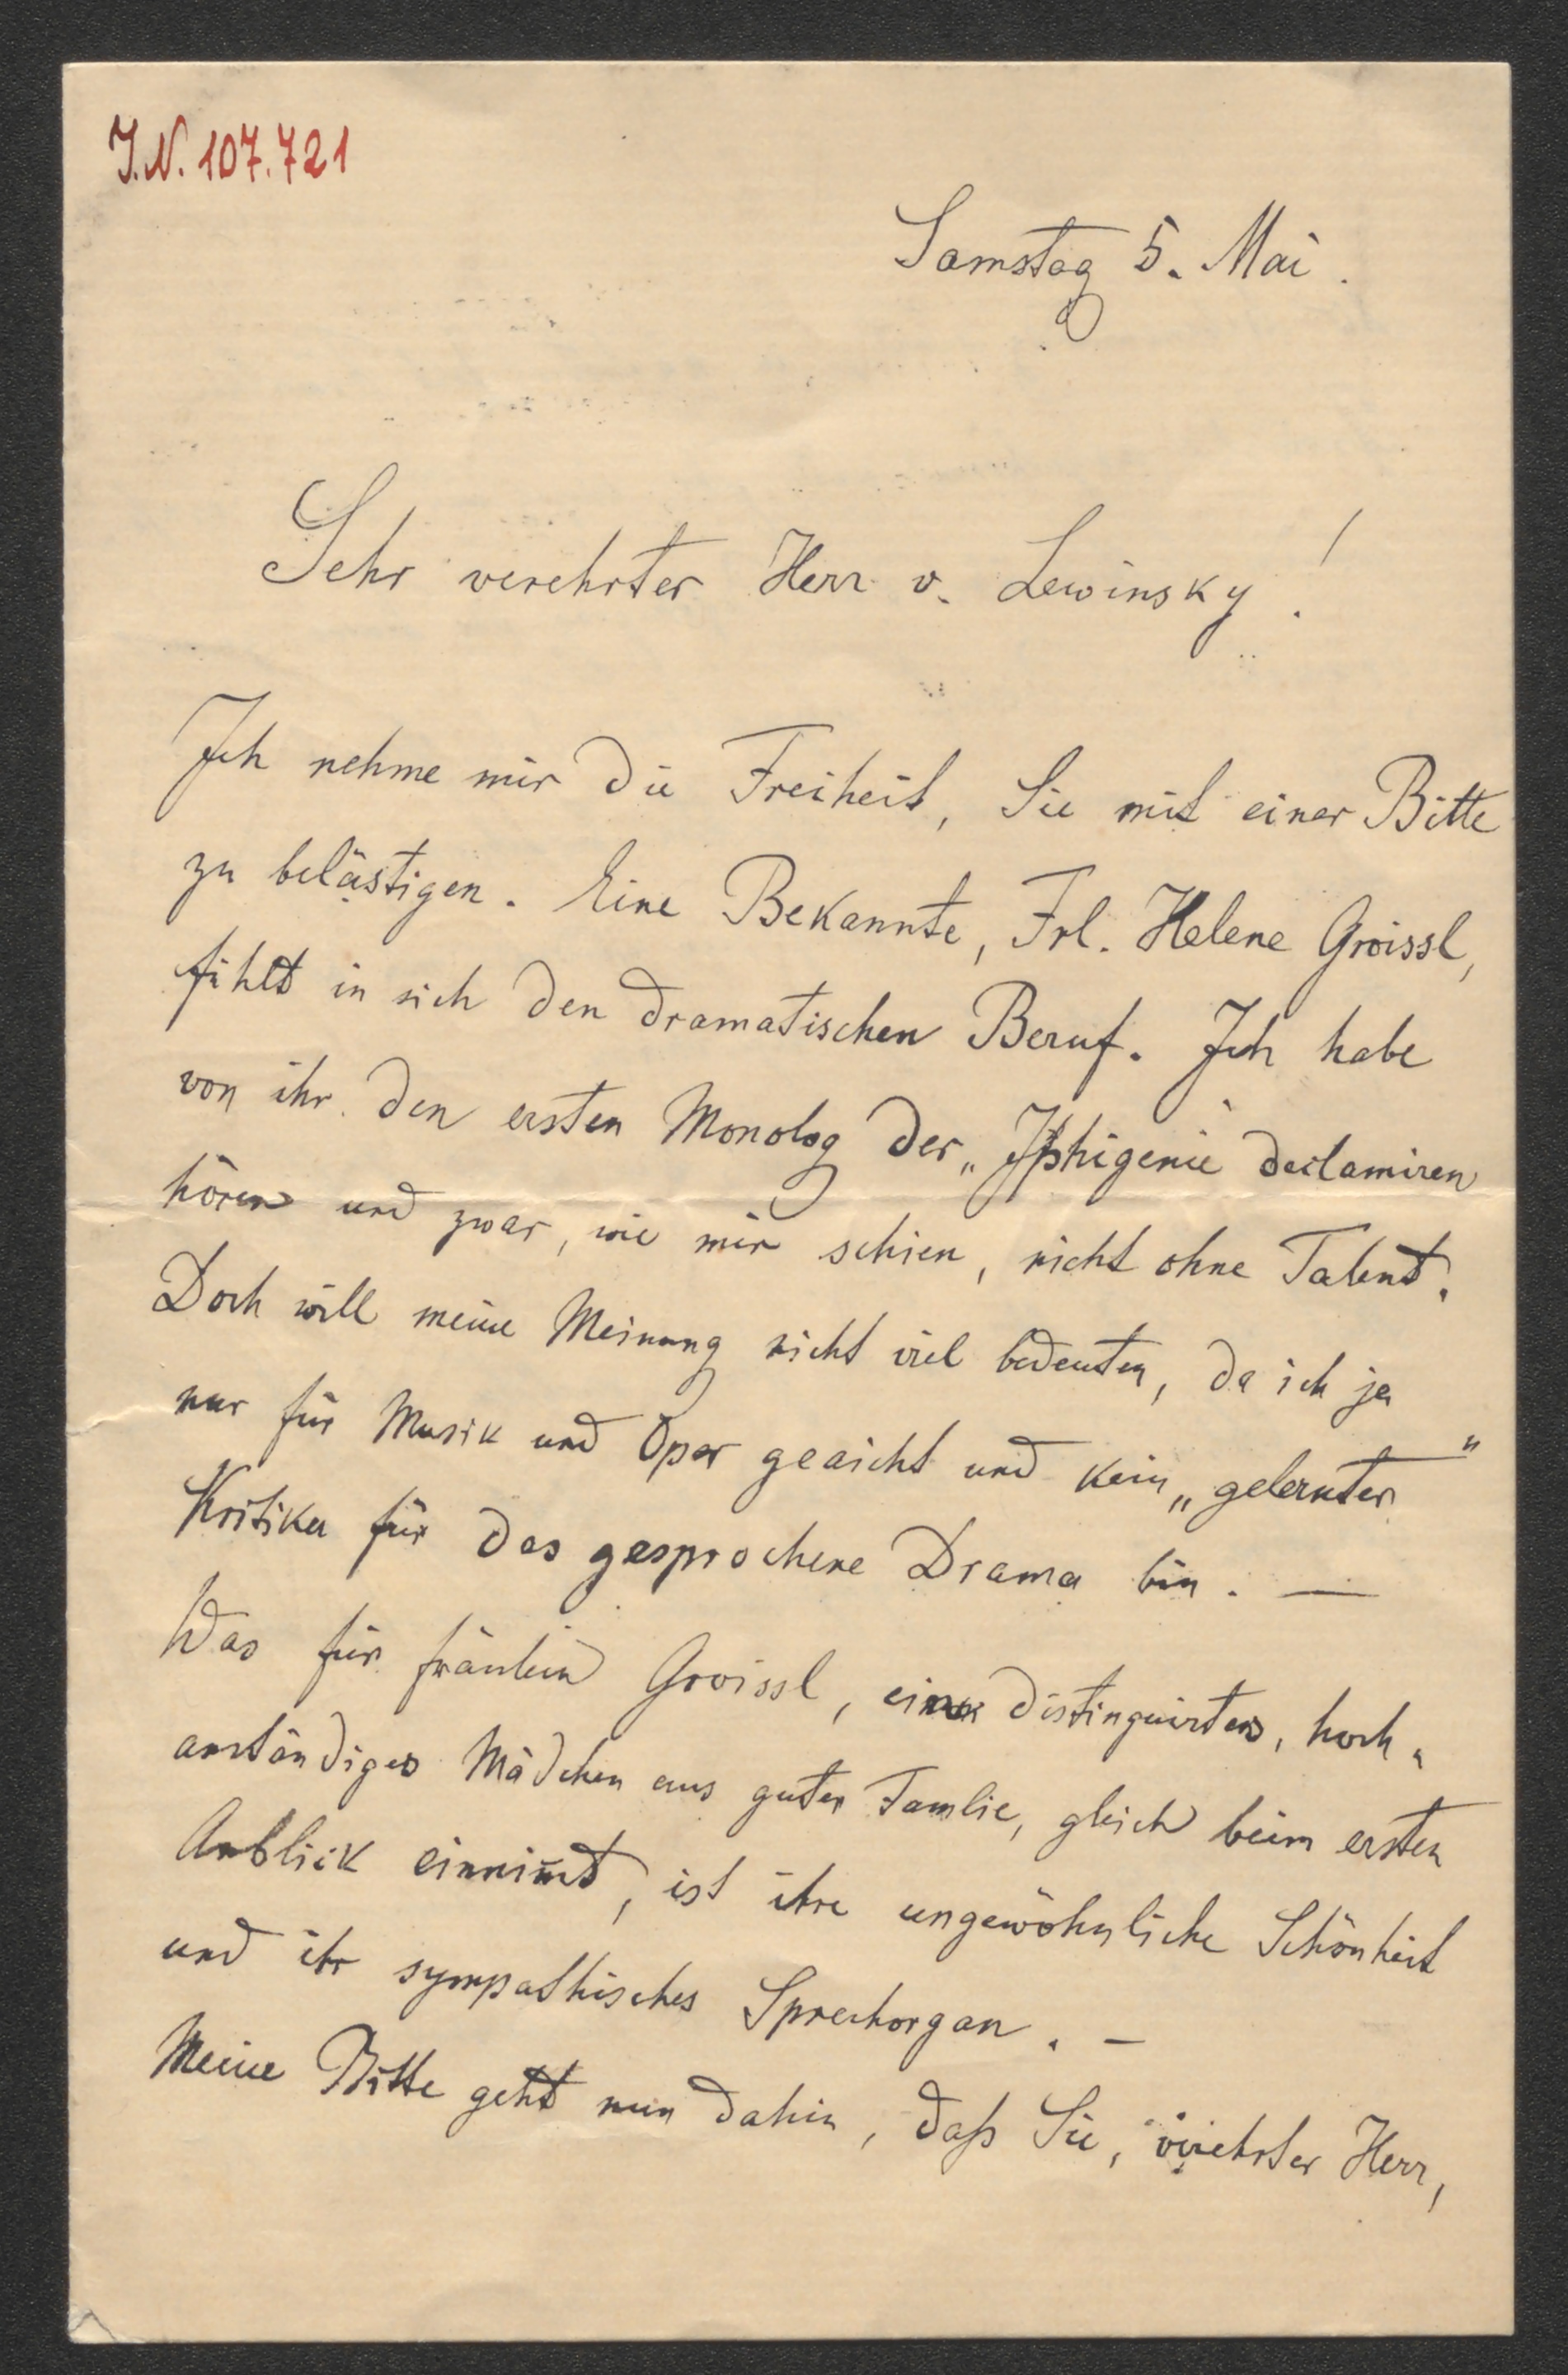 J.N. 107.721
Samstag 5. Mai.
Sehr verehrter Herr v. Lewinsky!
Ich nehme mir die Freiheit, Sie mit einer Bitte
zu belästigen. Eine Bekannte, Frl. Helene Groissl,
fühlt in sich den dramatischen Beruf. Ich habe
von ihr den ersten Monolog der „Iphigenie declamiren
hören und zwar, wie mir schien, nicht ohne Talent.
Doch will meine Meinung nicht viel bedeuten, da ich ja
nur für Musik und Oper geaicht und kein „gelernter"
Kritiker für das gesprochene Drama bin. —
Was für Fräulein Groissl, ein distinguirtes, hoch-
anständiges Mädchen aus guter Famlie, gleich beim ersten
Anblick einnim̄t, ist ihre ungewöhnliche Schönheit
und ihr sympathisches Sprechorgan. —
Meine Bitte geht nun dahin, daß Sie, verehrter Herr,